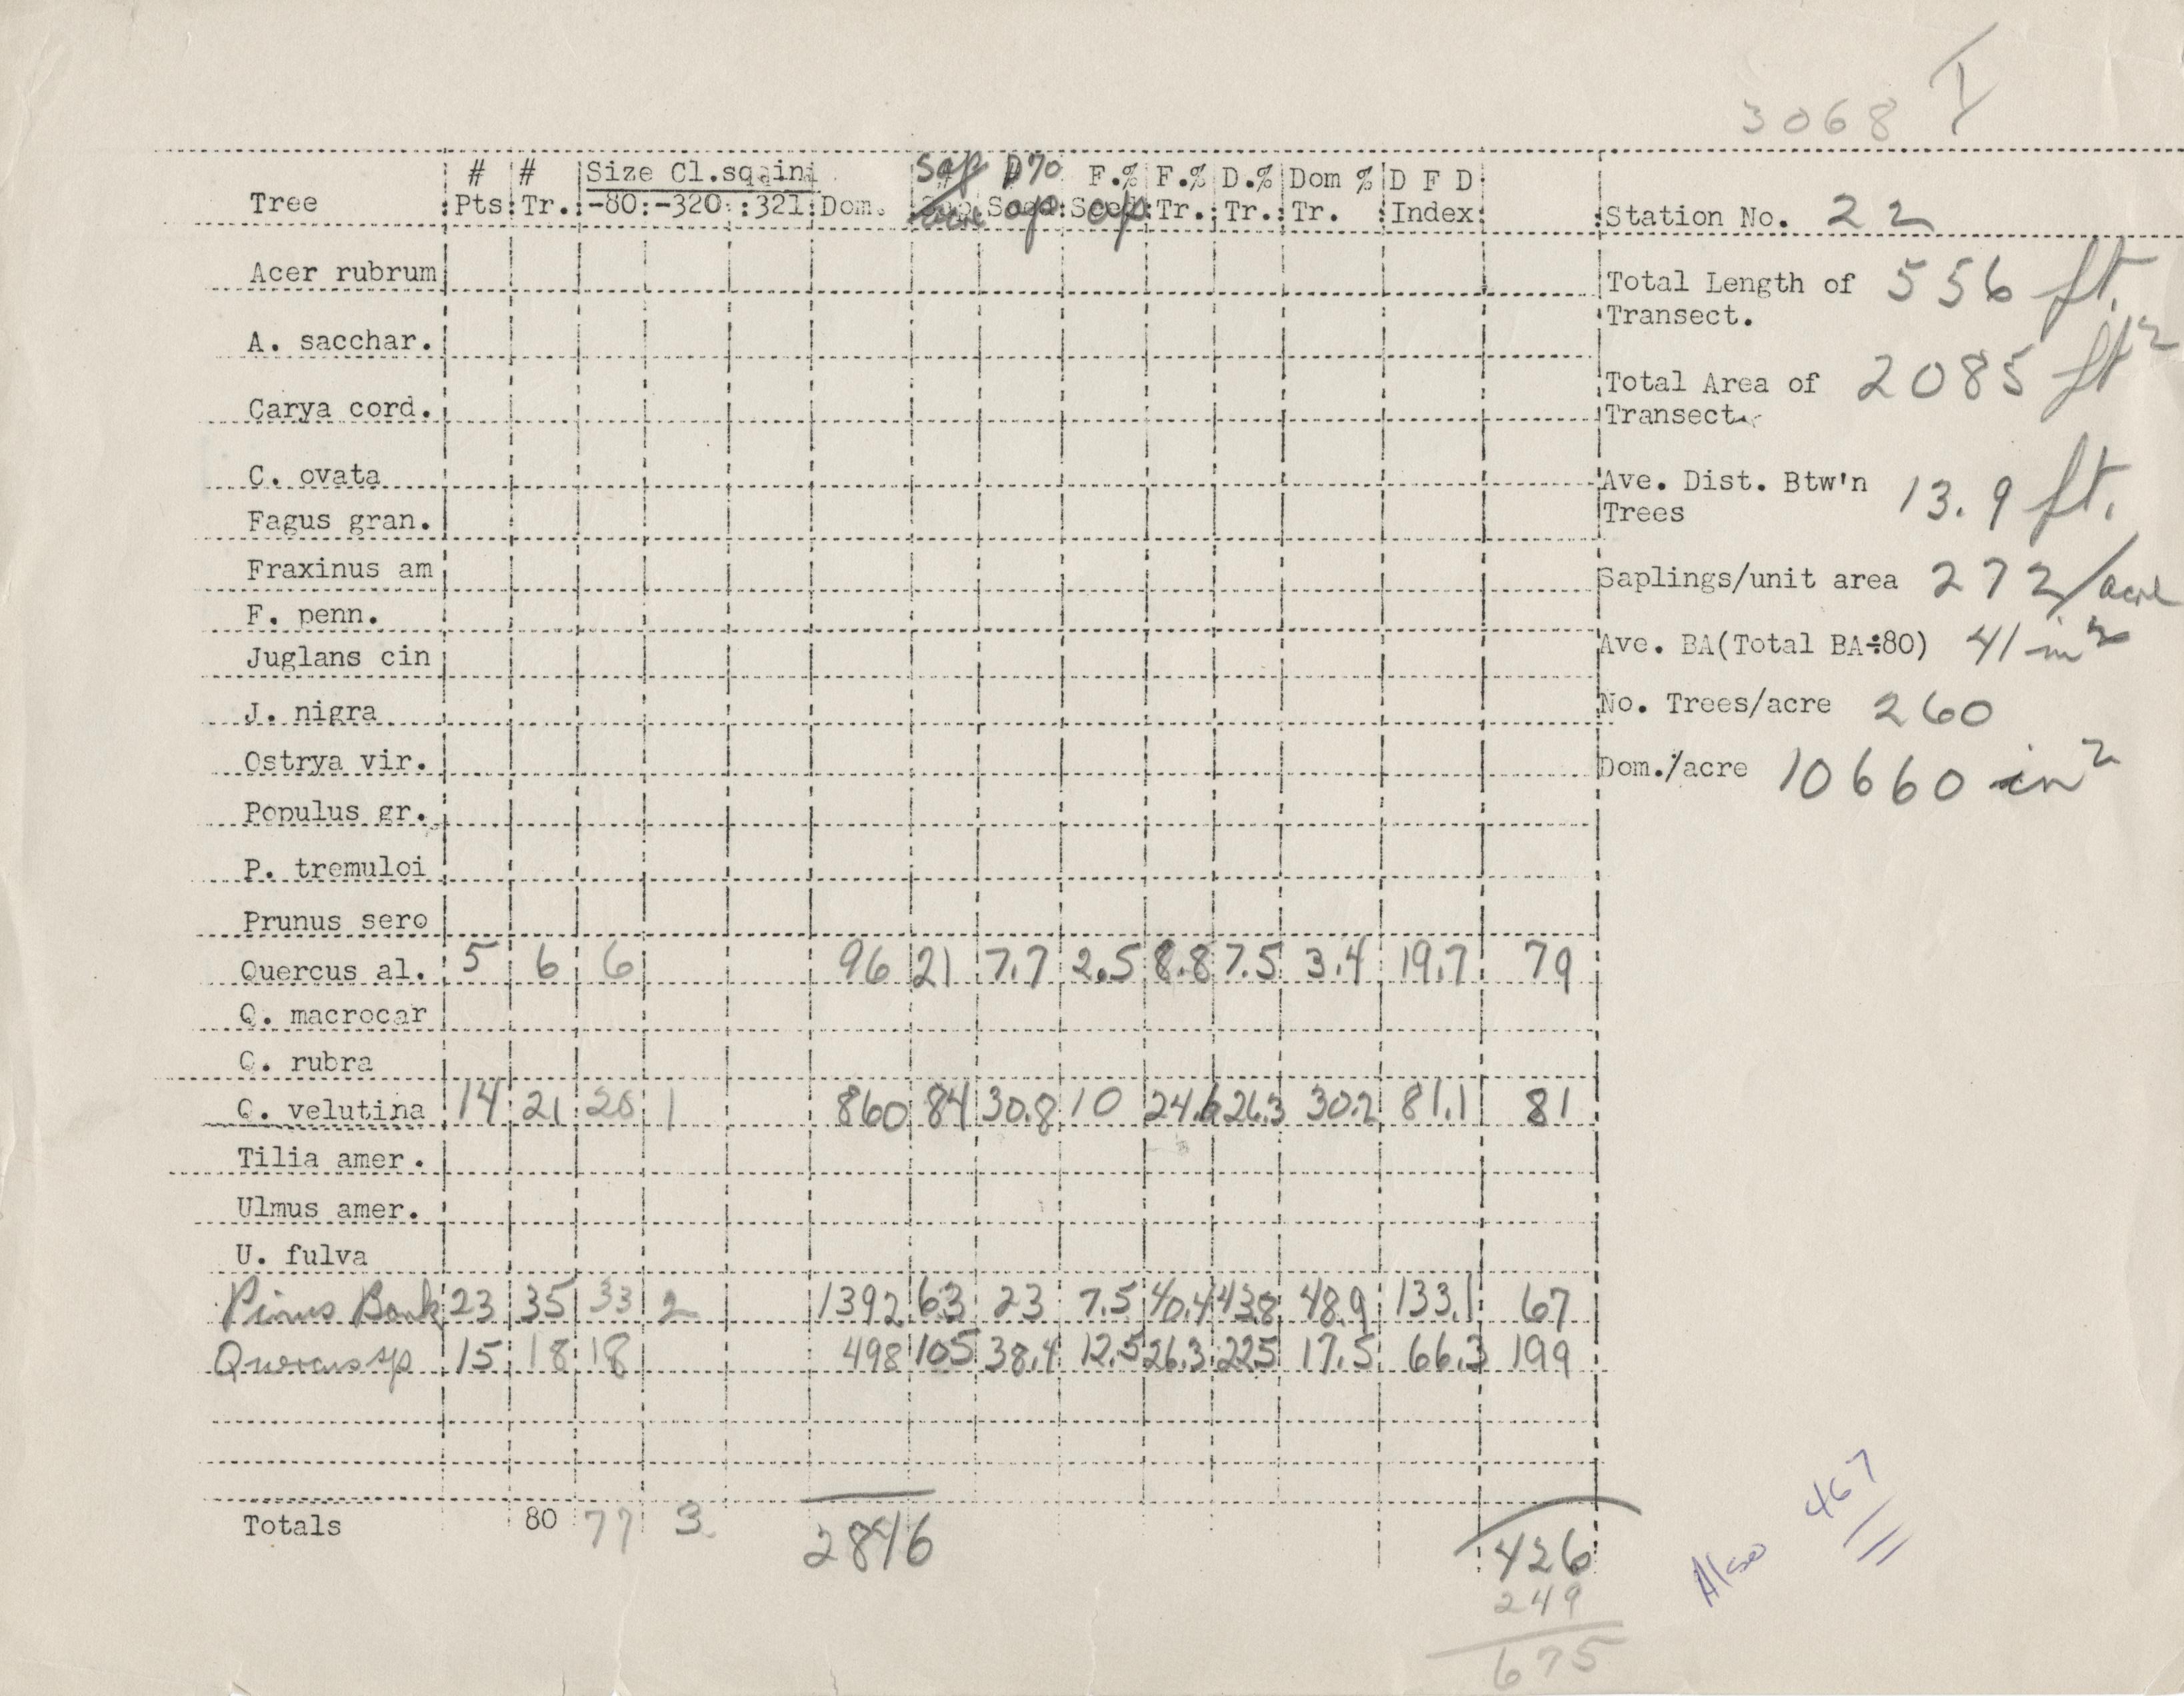 3068 I
# # Size Cl.sq in Sap D% F.% F.% D.% Dom % D F D
Tree Pts Tr. -80 -320 321 Dom. Sap Tr. Tr. Tr. Index Station No. 22
Acer rubrum
Total Length of 556 ft.
Transect.
A. sacchar.
Total Area of 2085 ft²
Carya cord.
Transect
C. ovata
Ave. Dist. Btw'n 13.9 ft.
Trees
Fagus gran.
Fraxinus am
Saplings/unit area 272/acre
F. penn.
Ave. BA(Total BA÷80) 41 in²
Juglans cin
No. Trees/acre 260
J. nigra
Ostrya vir.
Dom./acre 10660 in²
Populus gr.
P. tremuloi
Prunus sero
Quercus al. 5 6 6 96 21 7.7 2.5 8.8 7.5 3.4 19.7 79
Q. macrocar
Q. rubra
Q. velutina 14 21 20 1 860 84 30.8 10 24.6 26.3 30.2 81.1 81
Tilia amer.
Ulmus amer.
U. fulva
Pinus Bank 23 35 33 2 1392 63 23 7.5 40.4 43.8 48.9 133.1 67
Quercus sp 15 18 18 498 105 38.4 12.5 26.3 22.5 17.5 66.3 199
Totals 80 77 3 2846 426
249
675
Also 467